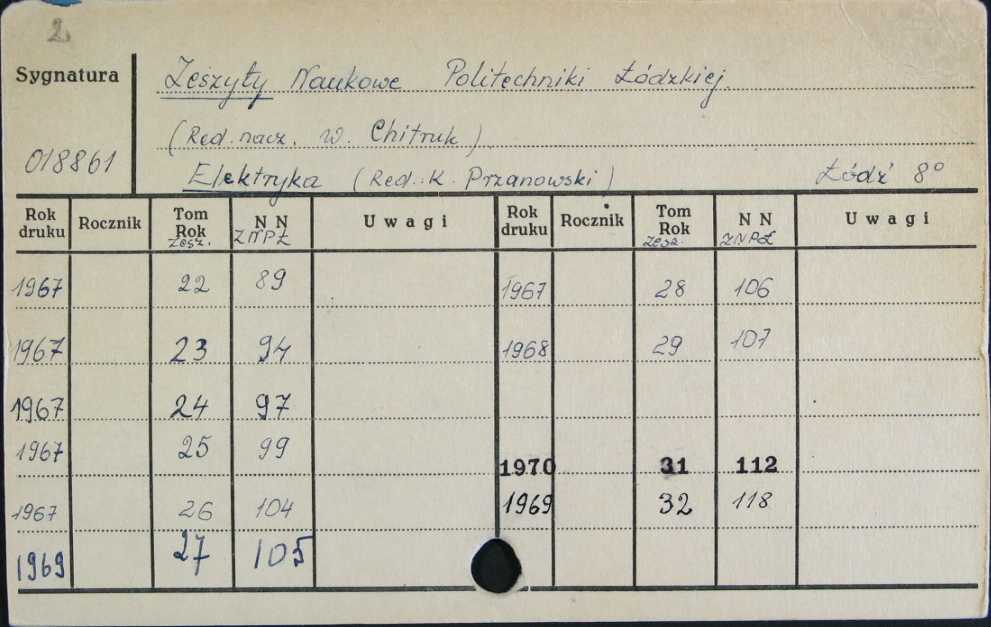 2
Sygnatura
Zeszyty Naukowe Politechniki Łódzkiej.
(Red. nacz. W. Chitruk)
018861
Elektryka (Red. K. Przanowski) Łódź 8°
Rok druku Rocznik Tom Rok Zesz. N N ZNPŁ Uwagi Rok druku Rocznik Tom Rok Zesz. N N ZNPŁ Uwagi
1967 22 89 1967 28 106
1967 23 94 1968 29 107
1967 24 97
1967 25 99 1970 31 112
1967 26 104 1969 32 118
1969 27 105